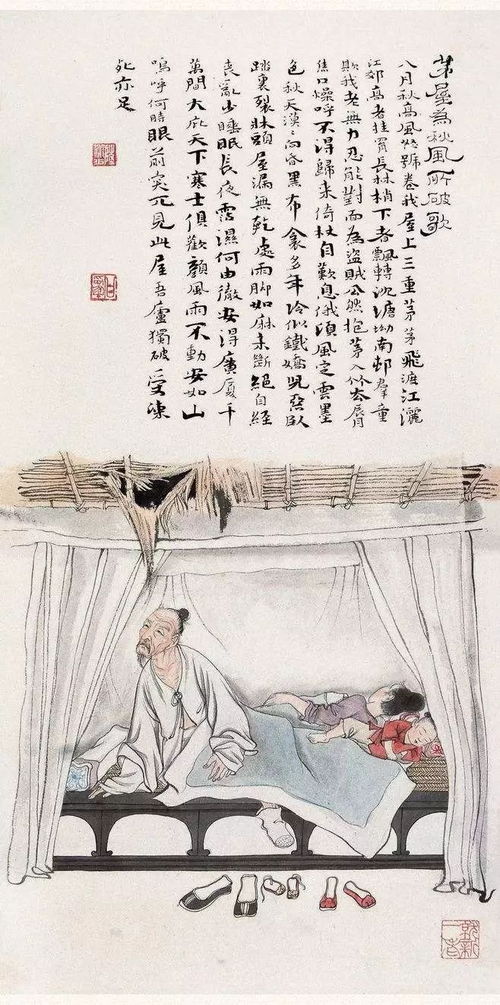 茅屋為秋風所破歌
八月秋高風怒號卷我屋上三重茅茅飛渡江灑
江郊高者挂罥長林梢下者飄轉沉塘坳南邨群童
欺我老無力忍能對面為盜賊公然抱茅入竹去唇
焦口燥呼不得歸來倚杖自歎息俄頃風定雲墨
色秋天漠〻向昏黑布衾多年冷似鐵嬌兒惡臥
踏裏裂牀頭屋漏無乾處雨腳如麻未斷絕自經
喪亂少睡眠長夜霑濕何由徹安得廣廈千
萬間大庇天下寒士俱歡顏風雨不動安如山
嗚呼何時眼前突兀見此屋吾廬獨破受凍
死亦足